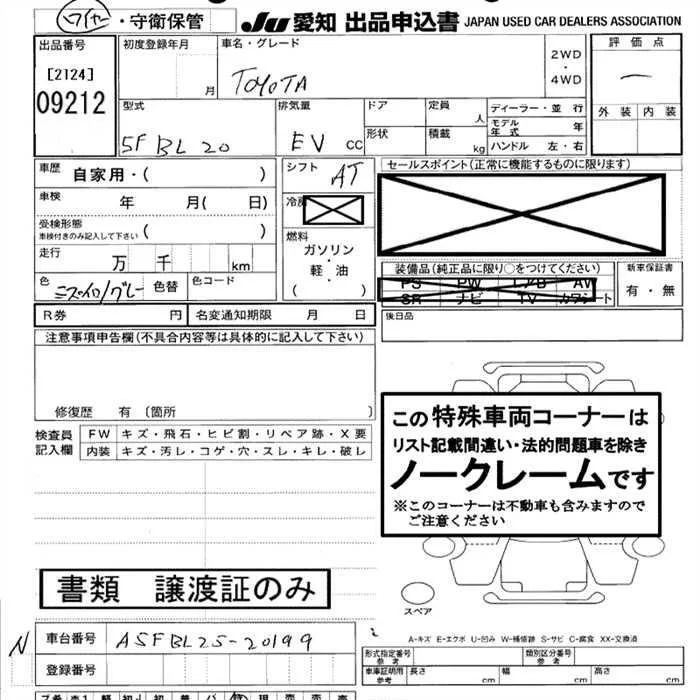 ワイヤー・守衛保管
JU 愛知 出品申込書 JAPAN USED CAR DEALERS ASSOCIATION
出品番号
[2124]
09212
初度登録年月
月
車名・グレード
TOYOTA
2WD
・
4WD
評価点
外装 内装
型式
5FBL20
排気量
EV cc
ドア
形状
定員
人
積載
kg
ディーラー・並 行
モデル年式 年
ハンドル 左・右
車歴
自家用・( )
車検 年 月( 日)
受検形態
車検付きのみ記入して下さい ( )
走行 万 千 km
色
グレー
色替
色コード
シフト
AT
燃料
ガソリン
・
軽・油
( )
セールスポイント(正常に機能するものに限ります)
装備品(純正品に限り○をつけてください)
PS PW AV
SR ナビ TV カワシート
新車保証書
有・無
R券 円
名変通知期限 月 日
後日品
注意事項申告欄(不具合内容等は具体的に記入して下さい)
修復歴 有〔箇所 〕
検査員
記入欄
FW キズ・飛石・ヒビ割・リペア跡・X要
内装 キズ・汚レ・コゲ・穴・スレ・キレ・破レ
この特殊車両コーナーは
リスト記載間違い・法的問題車を除き
ノークレームです
※このコーナーは不動車も含みますので
ご注意ください
書類 譲渡証のみ
スペア
A-キズ E-エクボ U-凹み W-補修跡 S-サビ C-腐食 XX-交換済
N 車台番号 A5FBL25-20199
登録番号
形式指定番号
参考
類別区分番号
参考
車庫証明用
参考
長さ cm
幅 cm
高さ cm